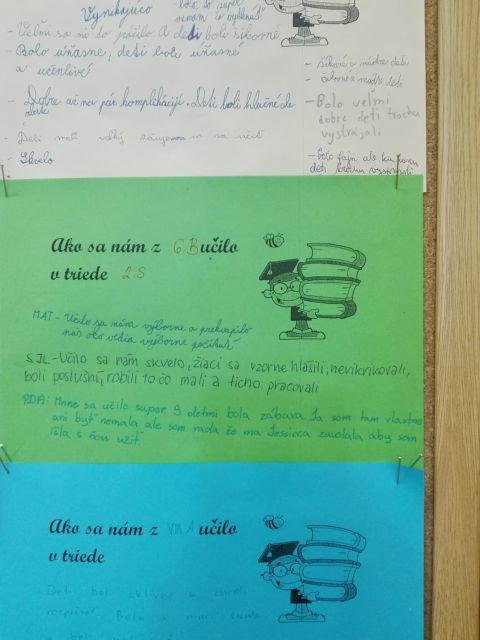 Vynikajúco
- Veľmi sa mi to páčilo. A deti boli šikovné
- Bolo úžasne, deti boli úžasné
a učenlivé
- Dobre až na pár komplikácií. Deti boli hlučné ale
- Deti mali veľký záujem sa učiť
- Skvelo
- šikovné a múdre deti
- šikovné a múdre deti
- Bolo veľmi
dobre deti trochu
vystrájali
- bolo fajn ale
deti trochu vystrájali
Ako sa nám z 6.B učilo
v triede 2.S
MAT - Učilo sa nám výborne a prekvapilo
nás ako vedia výborne počítať
SJL - Učilo sa nám skvelo, žiaci sa vzorne hlásili, nevikrikovali,
boli poslušní, robili to čo mali a ticho pracovali
PDA: Mne sa učilo super. S deťmi bola zábava. Ja som tam vlastne
ani byť nemala ale som rada že ma Jessica zavolala aby som
išla s ňou učiť.
Ako sa nám z VIII.A učilo
v triede
Deti boli aktívne a